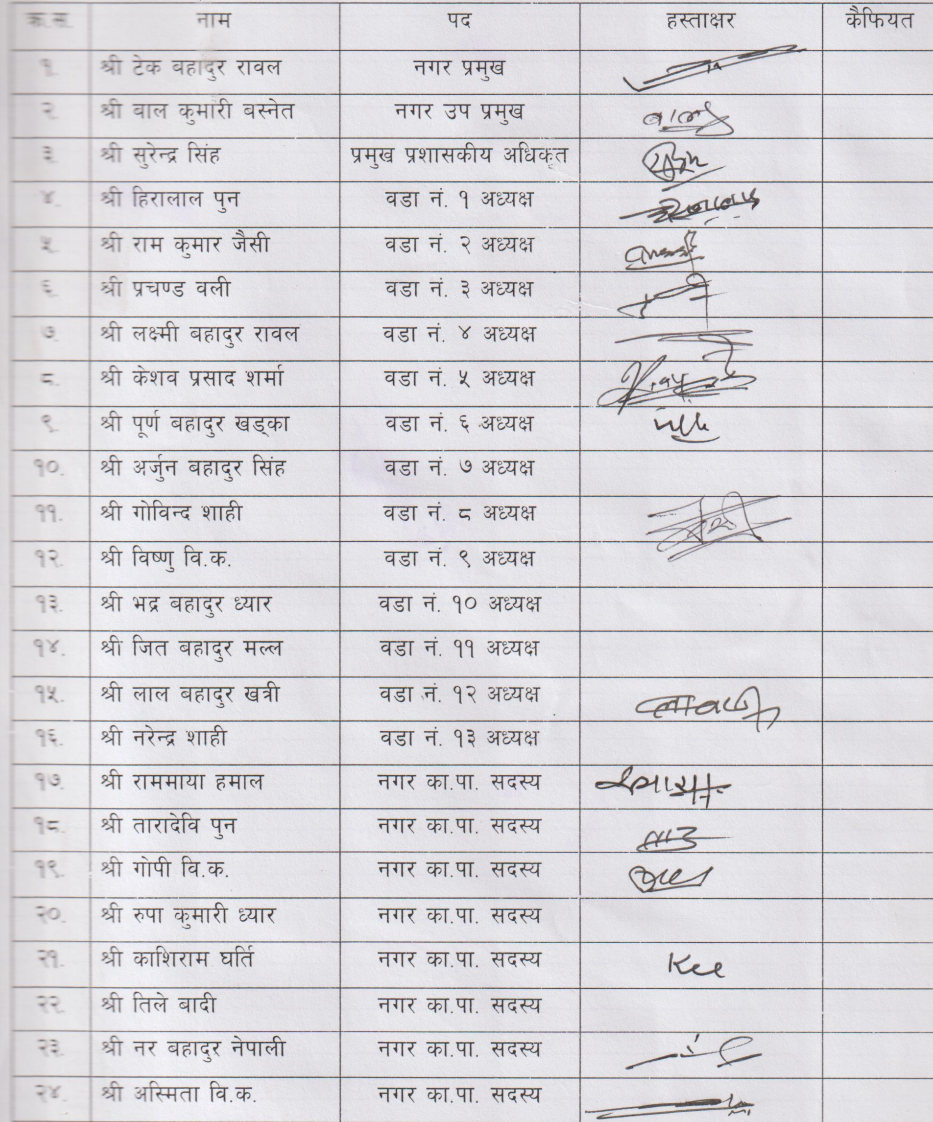 क्र.स. नाम पद हस्ताक्षर कैफियत
१. श्री टेक बहादुर रावल नगर प्रमुख
२. श्री बाल कुमारी बस्नेत नगर उप प्रमुख
३. श्री सुरेन्द्र सिंह प्रमुख प्रशासकीय अधिकृत
४. श्री हिरालाल पुन वडा नं. १ अध्यक्ष
५. श्री राम कुमार जैसी वडा नं. २ अध्यक्ष
६. श्री प्रचण्ड वली वडा नं. ३ अध्यक्ष
७. श्री लक्ष्मी बहादुर रावल वडा नं. ४ अध्यक्ष
८. श्री केशव प्रसाद शर्मा वडा नं. ५ अध्यक्ष
९. श्री पूर्ण बहादुर खड्का वडा नं. ६ अध्यक्ष
१०. श्री अर्जुन बहादुर सिंह वडा नं. ७ अध्यक्ष
११. श्री गोविन्द शाही वडा नं. ८ अध्यक्ष
१२. श्री विष्णु वि.क. वडा नं. ९ अध्यक्ष
१३. श्री भद्र बहादुर ध्यार वडा नं. १० अध्यक्ष
१४. श्री जित बहादुर मल्ल वडा नं. ११ अध्यक्ष
१५. श्री लाल बहादुर खत्री वडा नं. १२ अध्यक्ष
१६. श्री नरेन्द्र शाही वडा नं. १३ अध्यक्ष
१७. श्री राममाया हमाल नगर का.पा. सदस्य
१८. श्री तारादेवि पुन नगर का.पा. सदस्य
१९. श्री गोपी वि.क. नगर का.पा. सदस्य
२०. श्री रुपा कुमारी ध्यार नगर का.पा. सदस्य
२१. श्री काशिराम घर्ति नगर का.पा. सदस्य
२२. श्री तिले बादी नगर का.पा. सदस्य
२३. श्री नर बहादुर नेपाली नगर का.पा. सदस्य
२४. श्री अस्मिता वि.क. नगर का.पा. सदस्य